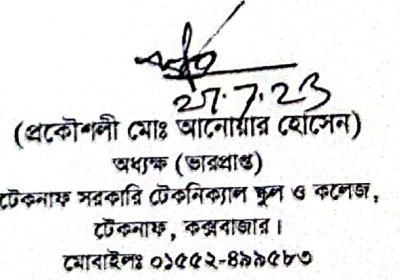 27.7.23
(প্রকৌশলী মোঃ আনোয়ার হোসেন)
অধ্যক্ষ (ভারপ্রাপ্ত)
টেকনাফ সরকারি টেকনিক্যাল স্কুল ও কলেজ,
টেকনাফ, কক্সবাজার।
মোবাইলঃ ০১৫৫২-৪৯৯৫৮৩